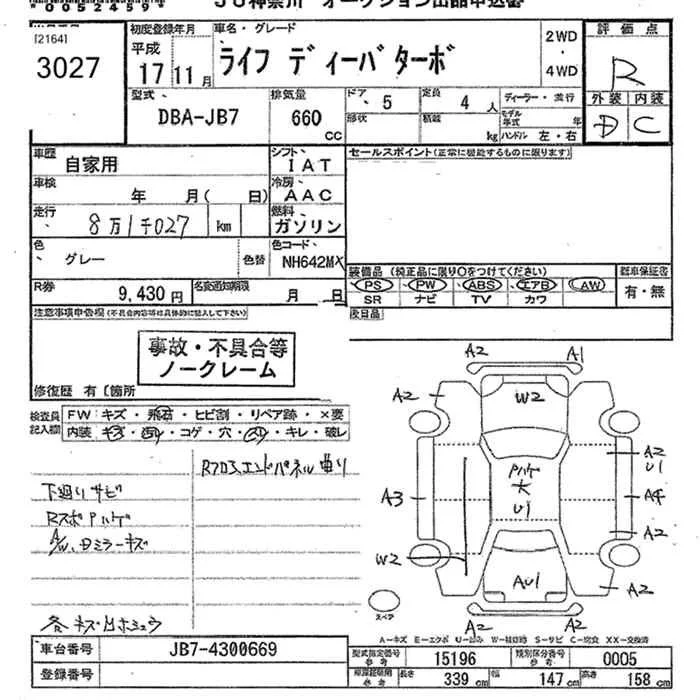 00052459
JU神奈川 オークション出品申込書
[2164]
3027
初度登録年月
平成
17 11月
車名・グレード
ライフ ディーバターボ
2WD
・
4WD
評価点
R
外装 内装
D C
型式
DBA-JB7
排気量
660
CC
ドア
5
定員
4 人
ディーラー・並行
形状
積載
kg
モデル年式 年
ハンドル 左・右
車歴
自家用
シフト
IAT
セールスポイント(正常に機能するものに限ります)
車検
年 月( 日)
冷房
AAC
走行
8万1千027 km
燃料
ガソリン
色
グレー
色替
色コード
NH642MX
装備品 (純正品に限り○をつけてください)
新車保証書
PS PW ABS エアB AW
有・無
SR ナビ TV カワ
R券
9,430 円
名変通知期限
月 日
後日品
注意事項申告欄(不具合内容等は具体的に記入して下さい)
事故・不具合等
ノークレーム
修復歴 有〔箇所
検査員
記入欄
FW:キズ・飛石・ヒビ割・リペア跡・×要
内装:キズ・・コゲ・穴・・キレ・破レ
Rフロスエンドパネル曲り
下廻りサビ
RスポPハゲ
A/W、Dミラーキズ
各キズ凹ホシュウ
A2 A1
A2 W2 A2
A2
U1
Pハゲ
大
U1
A3 A4
A2
W2
AU1
A2
A2 A2
スペア
A-キズ E-エクボ U-凹み W-補修跡 S-サビ C-腐食 XX-交換済
車台番号
JB7-4300669
登録番号
型式指定番号
参考
15196
類別区分番号
参考
0005
参考
長さ
339 cm
幅
147 cm
高さ
158 cm